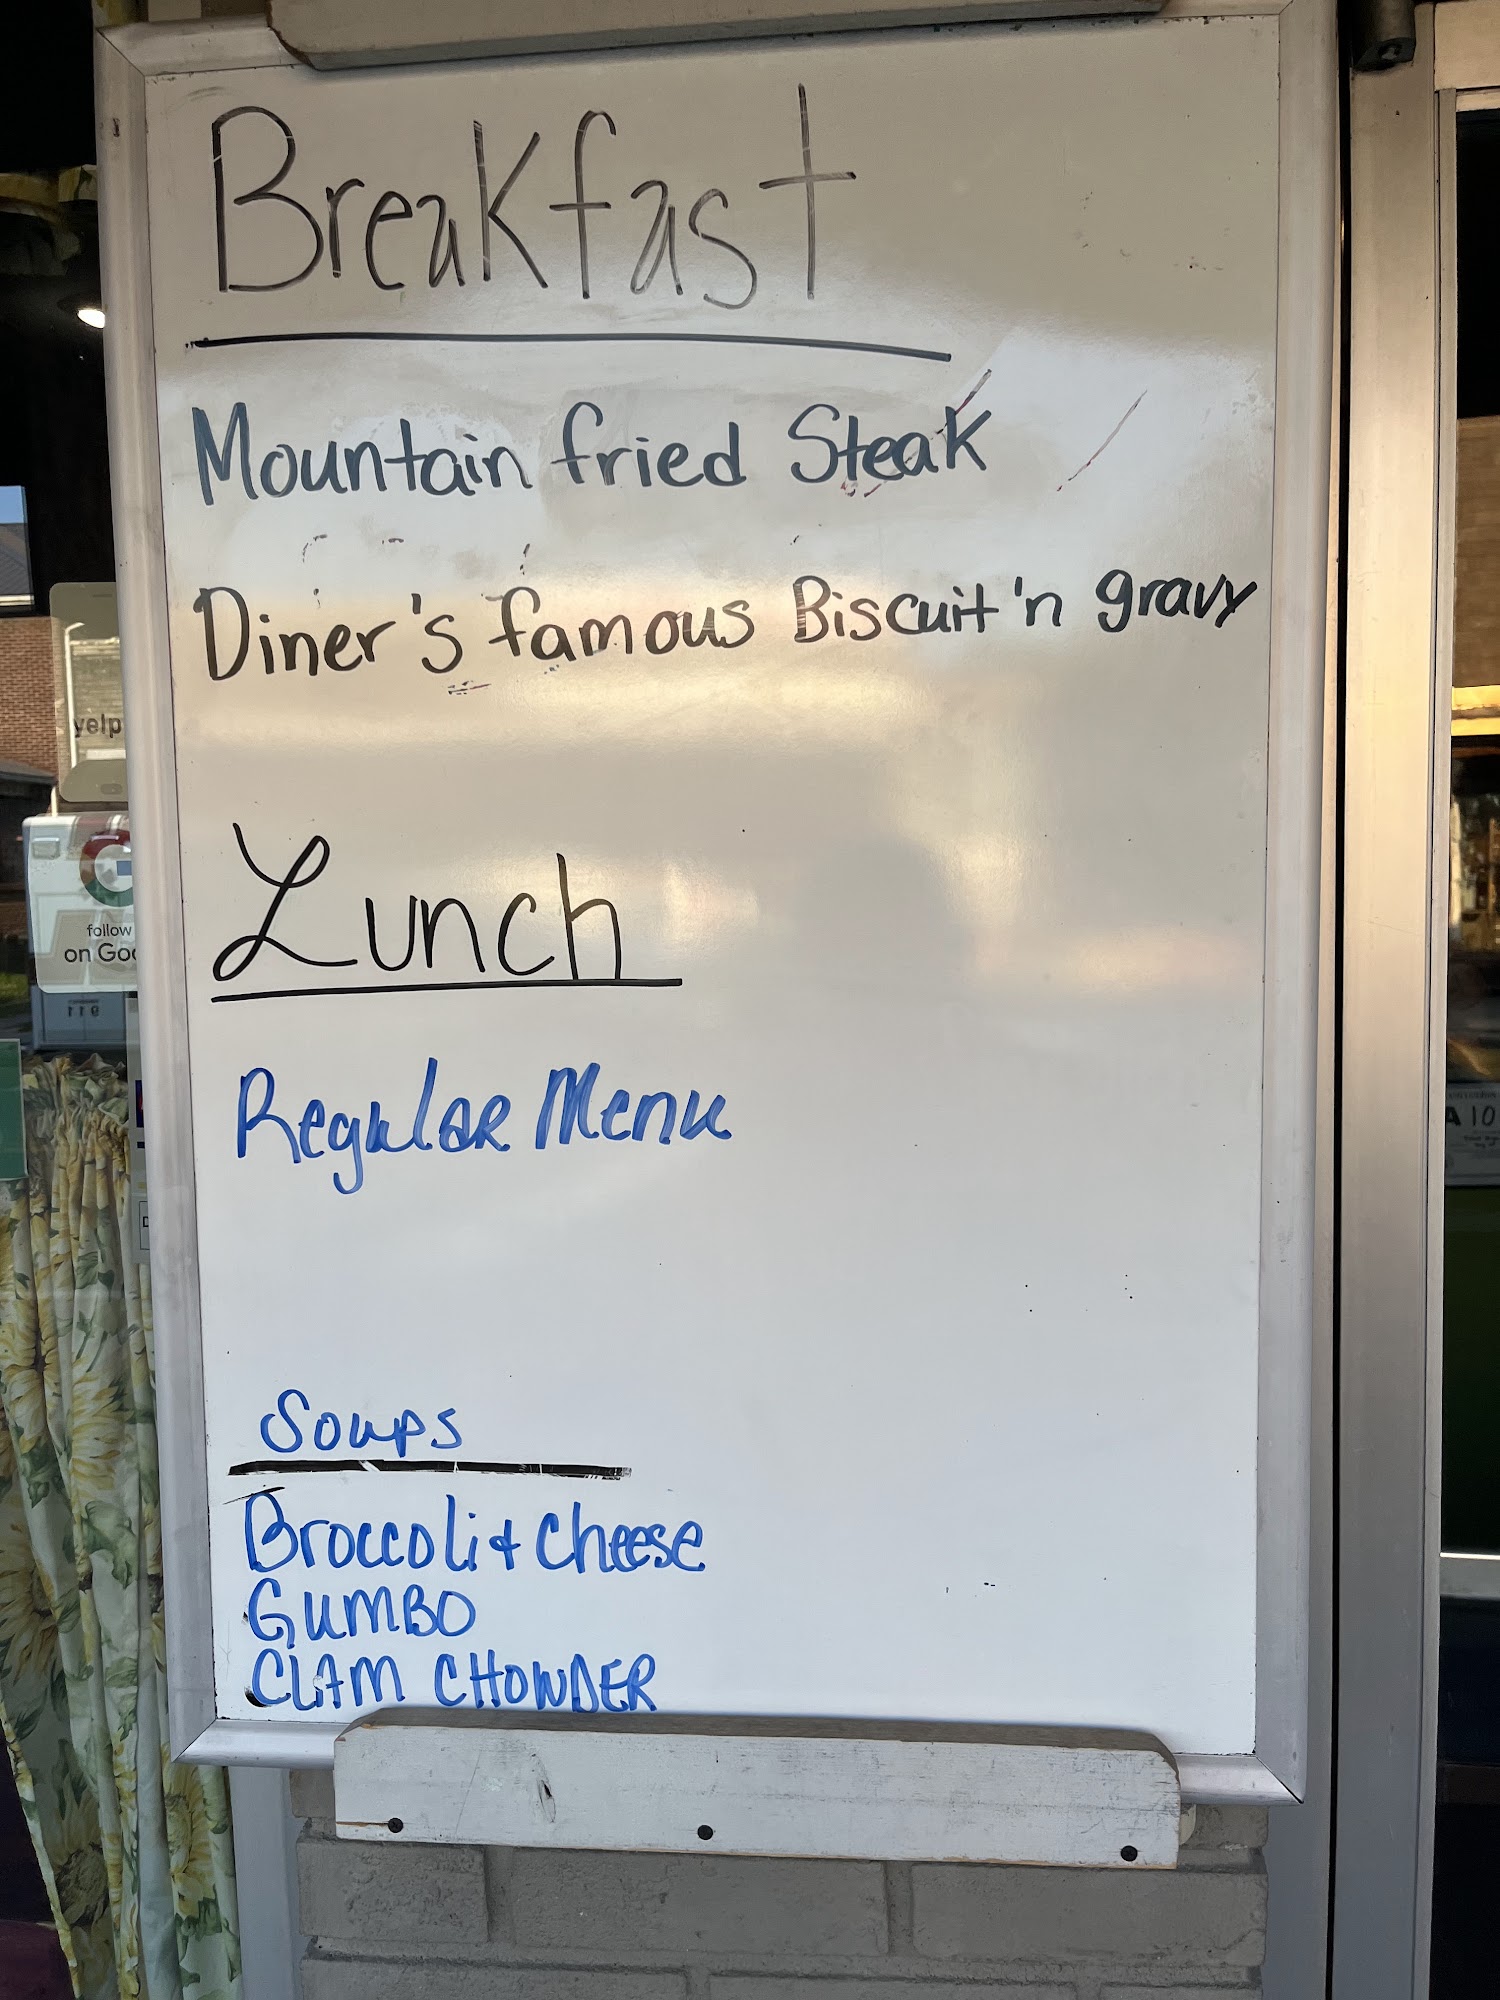 Breakfast
Mountain fried Steak
Diner's famous Biscuit 'n gravy
Lunch
Regular Menu
Soups
Broccoli & Cheese
GUMBO
CLAM CHOWDER
yelp
follow
on Goo
911
A 10